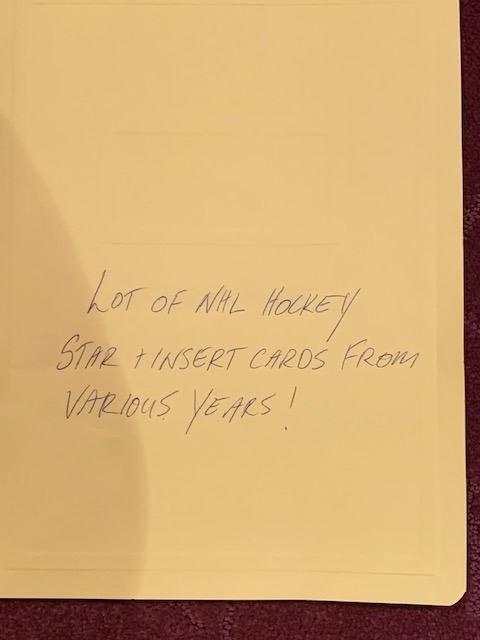 LOT OF NHL HOCKEY
STAR + INSERT CARDS FROM
VARIOUS YEARS!